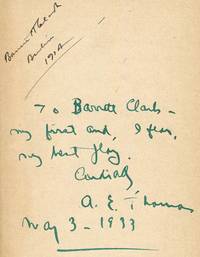 Barrett H. Clark
1912
To Barrett Clark –
my first and, I fear,
my best play.
Cordially
A. E. Thomas
May 3 – 1933